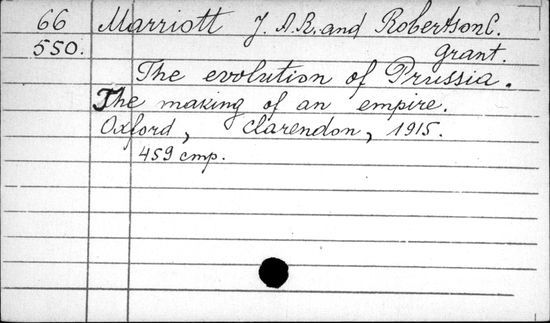 66 Marriott J. A. R. and Robertson C.
550. Grant.
The evolution of Prussia.
The making of an empire.
Oxford, Clarendon, 1915.
459 cmp.